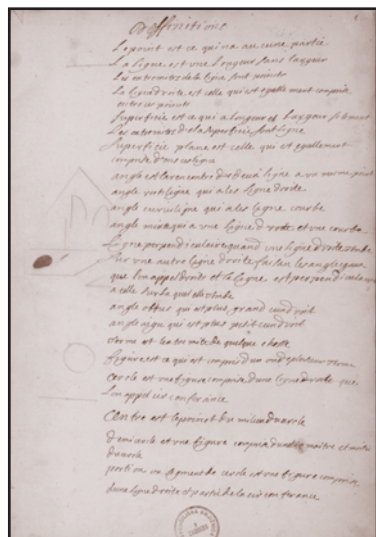 Deffinitions
Le point est ce qui na aucune partie
La Ligne est une Longeur sans Largeur
Les extremites de la ligne sont points
La ligne droite est celle qui est egallement comprise
entre ces points
Superficie est ce qui a longeur et Largeur seulement
Les extremites de la superficie sont ligne
Superficie plane est celle qui est egallement
comprise dans ces ligne
angle est la rencontre de deux ligne a un mesme point
angle rectiligne qui a les ligne droite
angle curviligne qui a les ligne courbe
angle mixte qui a une ligne droite et une courbe
Ligne perpendiculaire quand une ligne droite tombe
sur une autre ligne droite faisan les angles
que lon appel droits et la ligne est perpendiculaire
a celle sur la quelle tombe
angle obtus qui est plus grand cun droit
angle aigu qui est plus petit cun droit
terme est lextremite de quelque chose
figure est ce qui est compris dun ou de plusieur terme
cercle est une figure comprise dune ligne que
lon appel circonferance
Centre est le point du milieu du cercle
demi cercle est une figure comprise
du cercle
portion ou segment de cercle est une figure comprise
dune ligne droite et partie de la circonferance